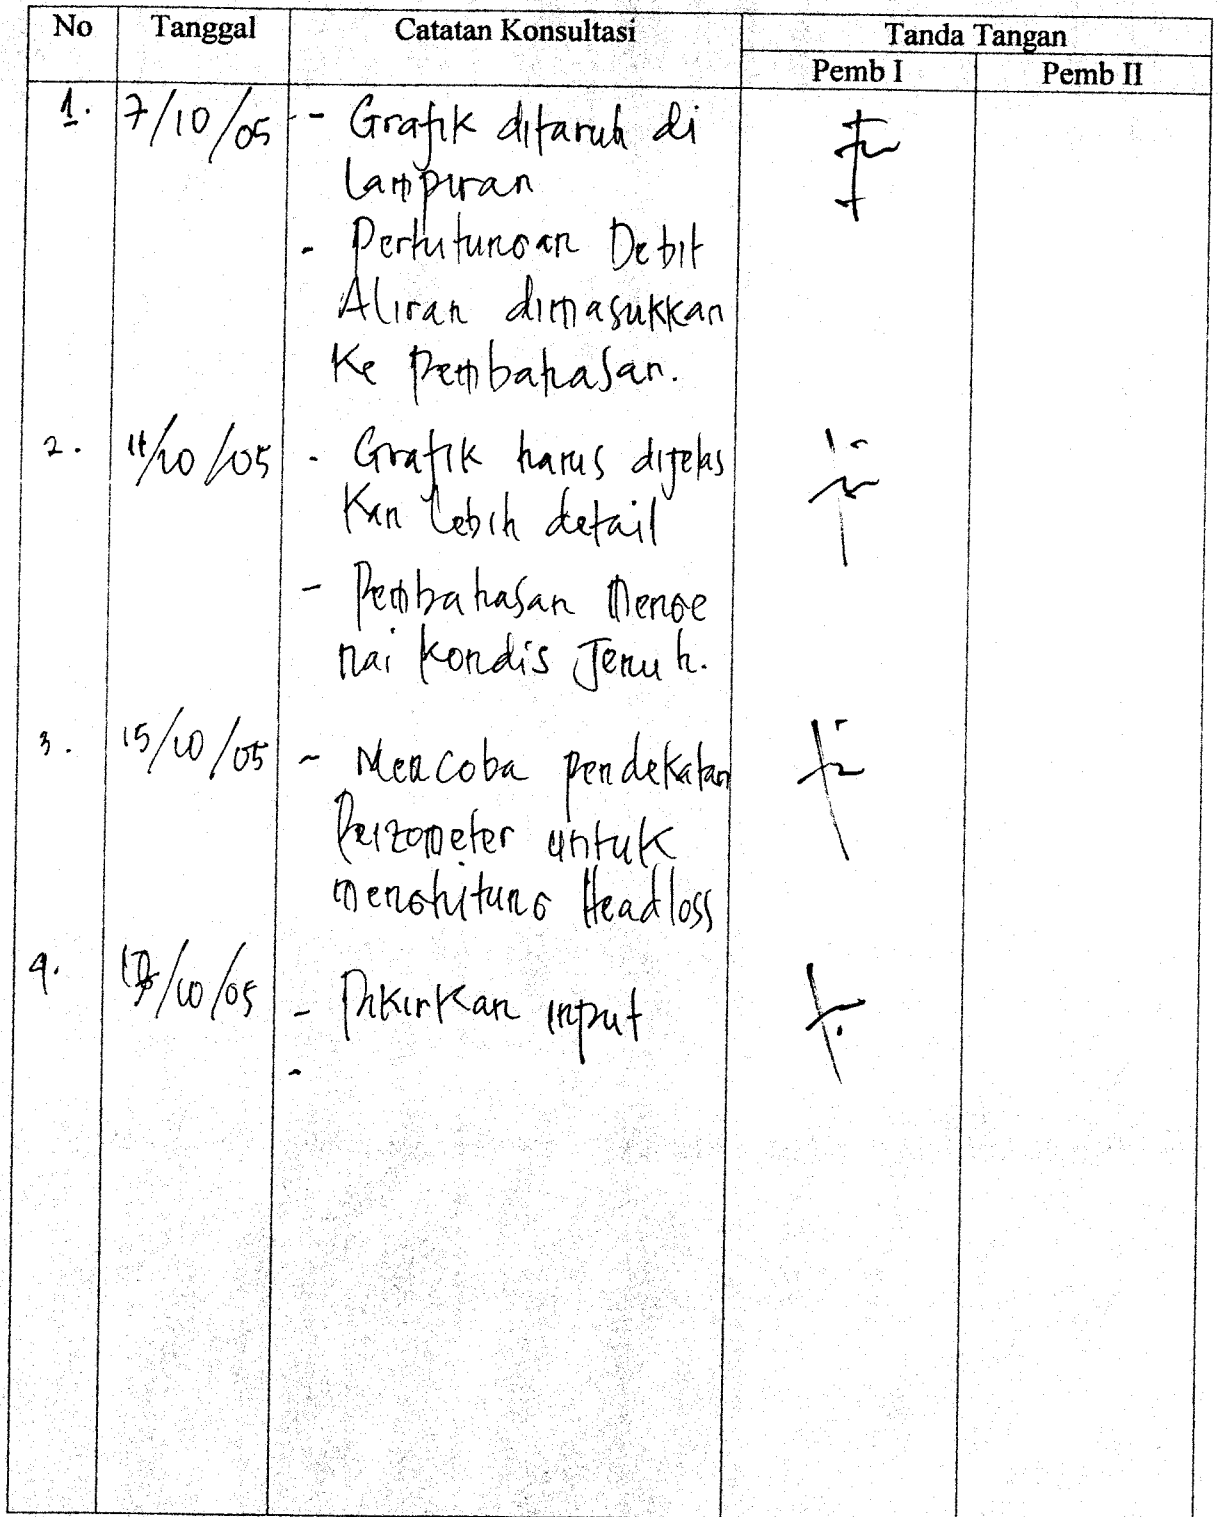 No Tanggal Catatan Konsultasi Tanda Tangan
Pemb I Pemb II
1. 7/10/05 - Grafik ditaruh di
lampiran
- Perhitungan Debit
Aliran dimasukkan
Ke Pembahasan.
2. 11/10/05 - Grafik harus dijelas
Kan lebih detail
- Pembahasan Menge
nai kondis Jenuh.
3. 15/10/05 - Mencoba pendekatan
Peizometer untuk
menghitung Headloss
4. /10/05 - Pikirkan input
-